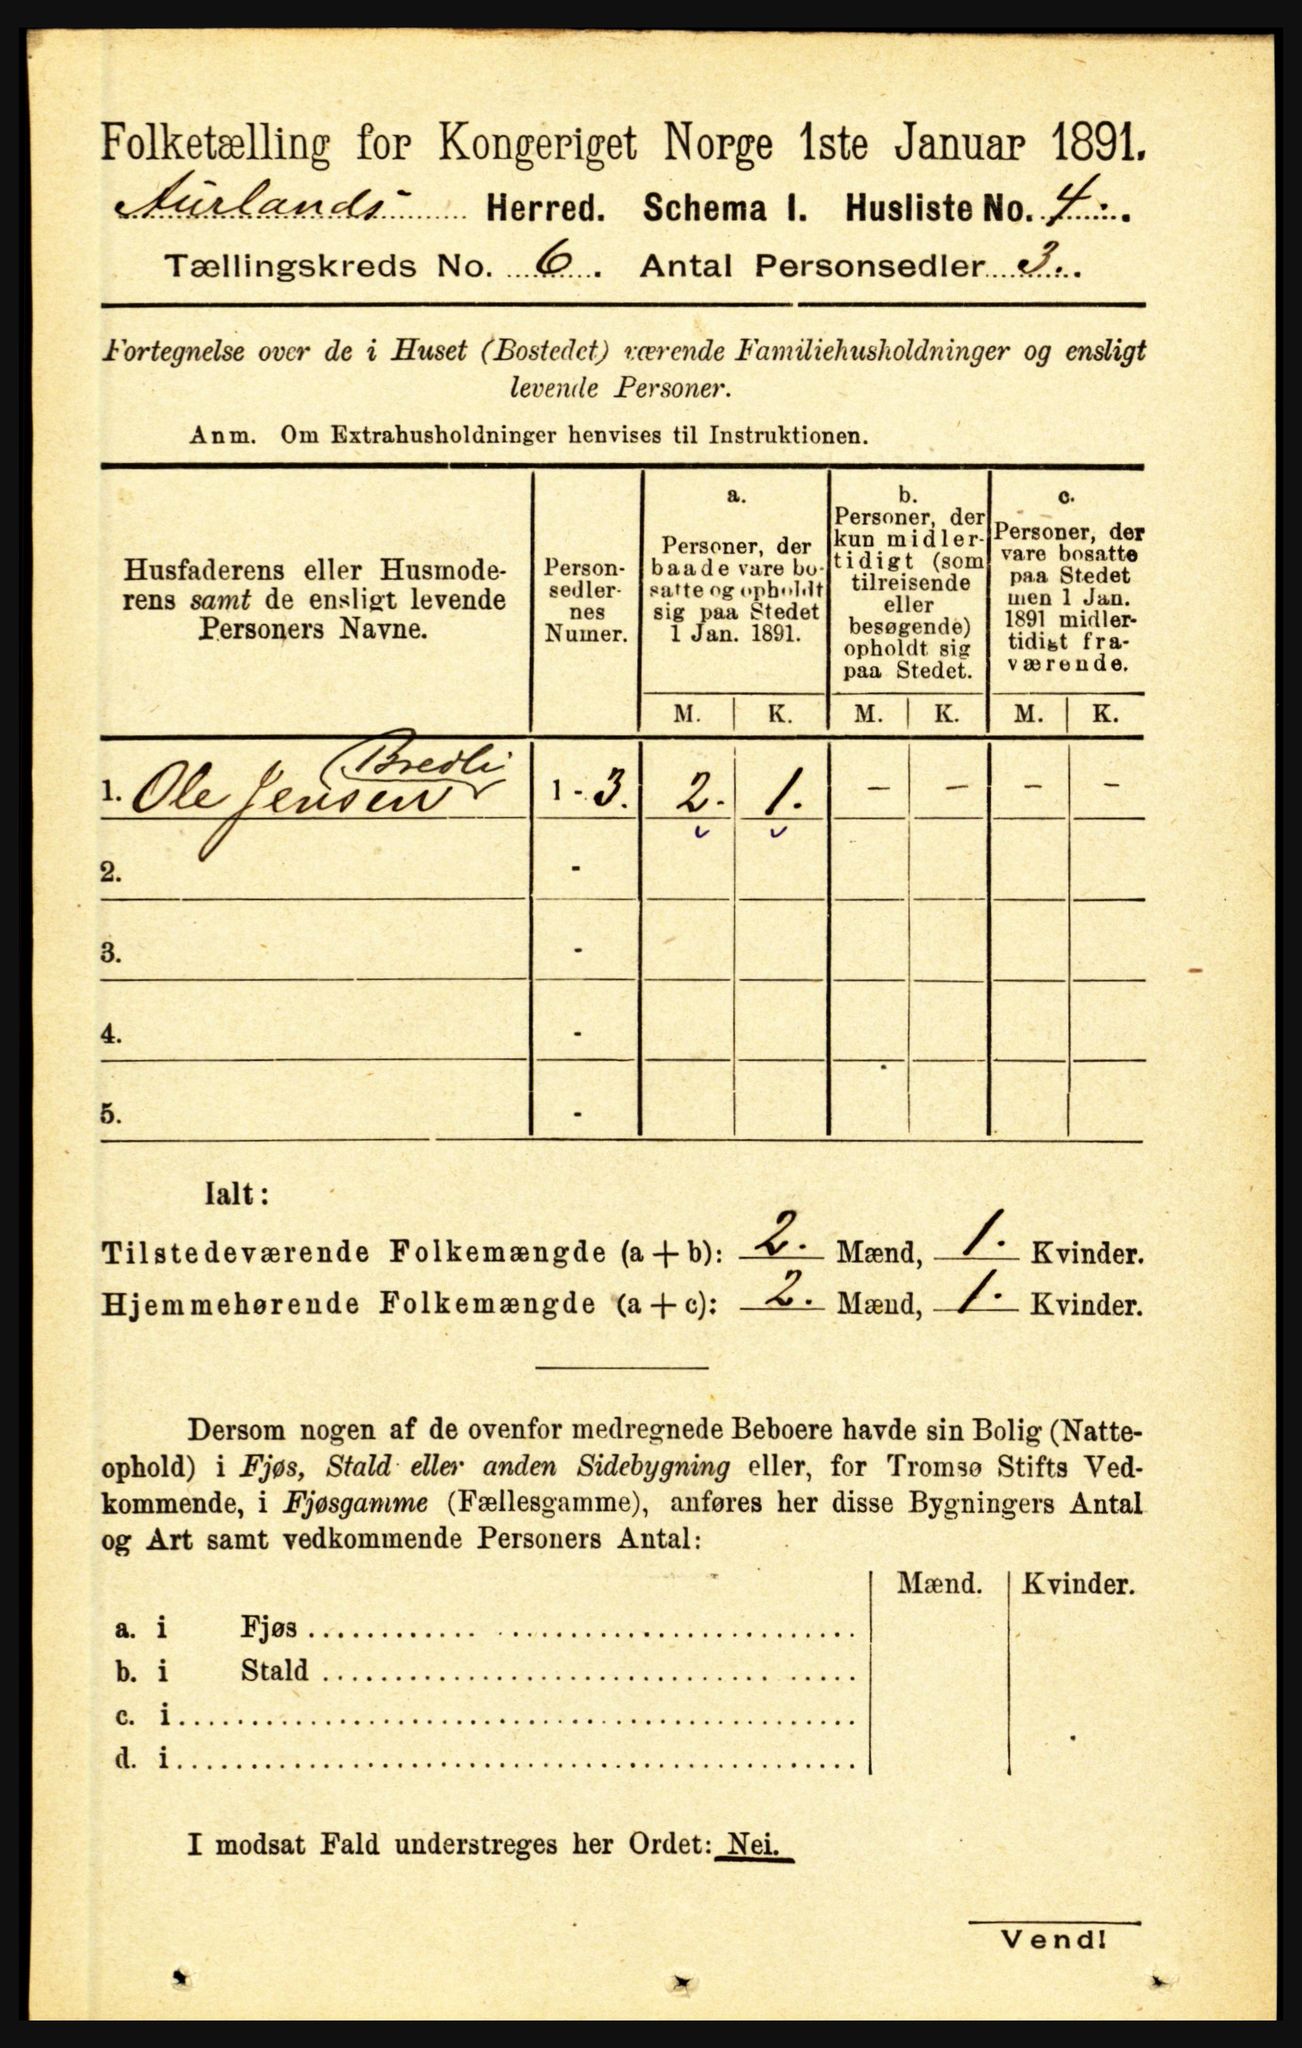 Folketælling for Kongeriget Norge 1ste Januar 1891.
Aurlands Herred. Schema I. Husliste No. 4.
Tællingskreds No. 6. Antal Personsedler 3.
Fortegnelse over de i Huset (Bostedet) værende Familiehusholdninger og ensligt
levende Personer.
Anm. Om Extrahusholdninger henvises til Instruktionen.
Husfaderens eller Husmode-
rens samt de ensligt levende
Personers Navne.
Person-
sedler-
nes
Numer.
a.
Personer, der
baade vare bo-
satte og opholdt
sig paa Stedet
1 Jan. 1891.
b.
Personer, der
kun midler-
tidigt (som
tilreisende
eller
besøgende)
opholdt sig
paa Stedet.
c.
Personer, der
vare bosatte
paa Stedet
men 1 Jan.
1891 midler-
tidigt fra-
værende.
M. K. M. K. M. K.
Bredli
1. Ole Jensen 1 - 3. 2. 1. - - - -
2. -
3. -
4. -
5. -
Ialt:
Tilstedeværende Folkemængde (a + b): 2. Mænd, 1. Kvinder.
Hjemmehørende Folkemængde (a + c): 2. Mænd, 1. Kvinder.
Dersom nogen af de ovenfor medregnede Beboere havde sin Bolig (Natte-
ophold) i Fjøs, Stald eller anden Sidebygning eller, for Tromsø Stifts Ved-
kommende, i Fjøsgamme (Fællesgamme), anføres her disse Bygningers Antal
og Art samt vedkommende Personers Antal:
Mænd. Kvinder.
a. i Fjøs
b. i Stald
c. i
d. i
I modsat Fald understreges her Ordet: Nei.
Vend!